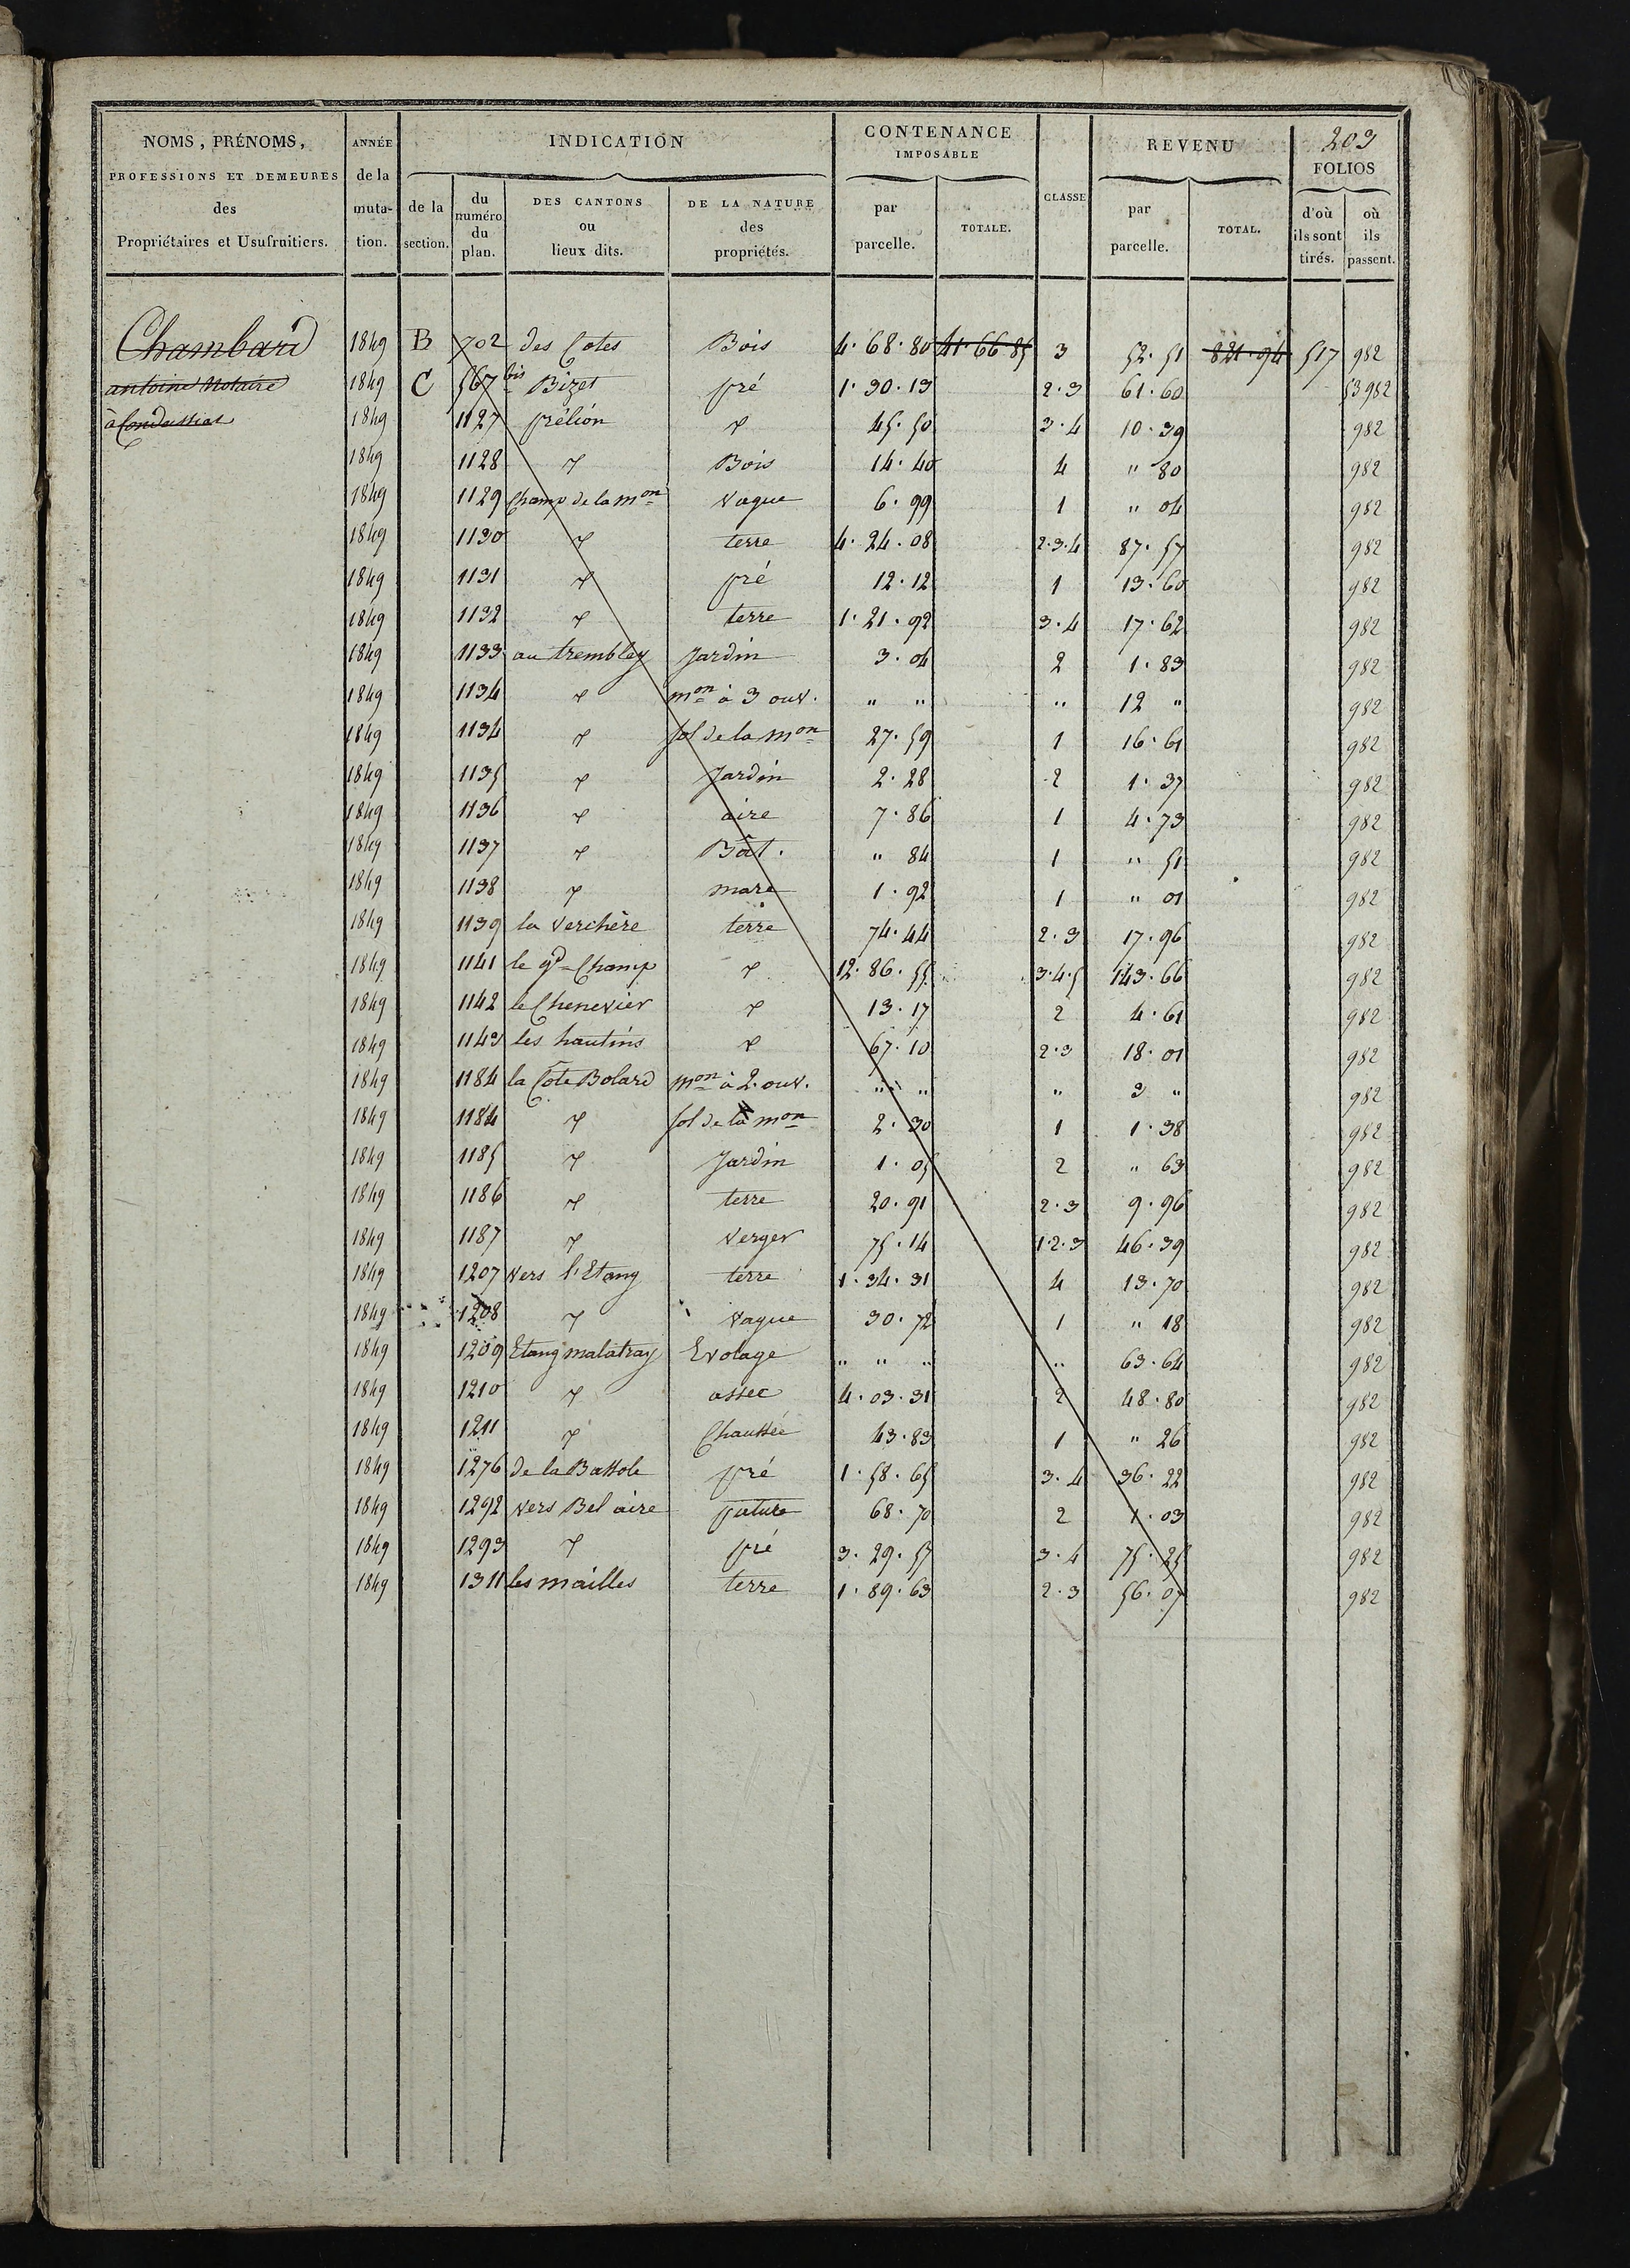 203
NOMS, PRÉNOMS, PROFESSIONS ET DEMEURES des Propriétaires et Usufruitiers.
ANNÉE de la muta-tion.
INDICATION
de la section.
du numéro du plan.
DES CANTONS ou lieux dits.
DE LA NATURE des propriétés.
CONTENANCE IMPOSABLE
par parcelle.
TOTALE.
CLASSE
REVENU
par parcelle.
TOTAL.
FOLIOS
d'où ils sont tirés.
où ils passent.
Chambard 1849 B 702 des Cotes Bois 4.68.80 41.66.85 3 52.51 821.94 517 982
antoine Notaire 1849 C 567 bis Bizet pré 1.30.13 2.3 61.60 53982
à Condeissiat 1849 1127 prélion d 45.50 3.4 10.39 982
1849 1128 d Bois 14.40 4 " 80 982
1849 1129 Champ de la mon vague 6.99 1 " 04 982
1849 1130 d terre 4.24.08 2.3.4 87.57 982
1849 1131 d pré 12.12 1 13.60 982
1849 1132 d terre 1.21.92 3.4 17.62 982
1849 1133 au trembley Jardin 3.04 2 1.83 982
1849 1134 d mon à 3 ouv. " " " 12 " 982
1849 1134 d sol de la mon 27.59 1 16.61 982
1849 1135 d Jardin 2.28 2 1.37 982
1849 1136 d aire 7.86 1 4.73 982
1849 1137 d Bât. " 84 1 " 51 982
1849 1138 d mare 1.92 1 " 01 982
1849 1139 la Verchère terre 74.44 2.3 17.96 982
1849 1141 le gd Champ d 12.86.55 3.4.5 143.66 982
1849 1142 le Chenevier d 13.17 2 4.61 982
1849 1143 les hautins d 67.10 2.3 18.01 982
1849 1184 la Cote Bolard mon à 2. ouv. " " " 9 " 982
1849 1184 d sol de la mon 2.30 1 1.38 982
1849 1185 d Jardin 1.05 2 " 63 982
1849 1186 d terre 20.91 2.3 9.96 982
1849 1187 d Verger 75.14 1.2.3 46.39 982
1849 1207 vers l'Etang terre 1.34.31 4 13.70 982
1849 1208 d vague 30.72 1 " 18 982
1849 1209 Etang malatray Evolage " " " " 63.64 982
1849 1210 d assec 4.03.31 2 48.80 982
1849 1211 d Chaussée 43.83 1 " 26 982
1849 1276 de la Battole pré 1.58.65 3.4 36.22 982
1849 1292 vers Bel aire pature 68.70 2 1.03 982
1849 1293 d pré 3.29.57 3.4 75.25 982
1849 1311 les mailles terre 1.89.63 2.3 56.07 982